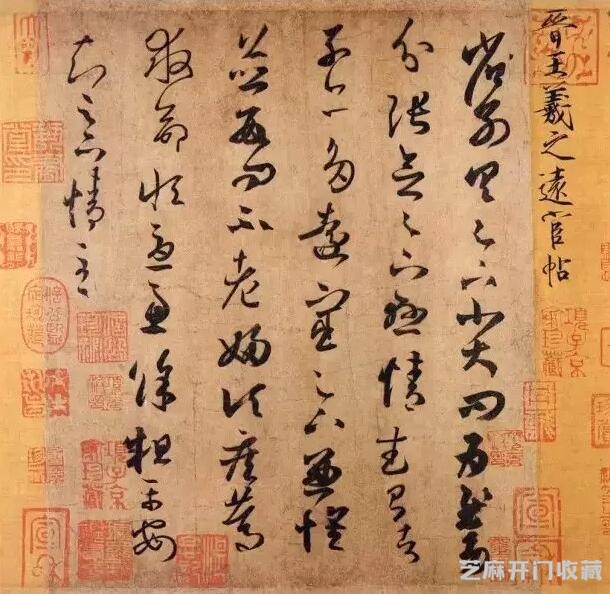 晉王羲之遠宦帖
省別具足下小大問為慰多
分張念足下懸情武昌諸
子亦多遠宦足下兼懷
並數問不老婦頃疾篤
救命恒憂慮餘粗平安
知足下情至
項子京家珍藏
芝麻开门收藏